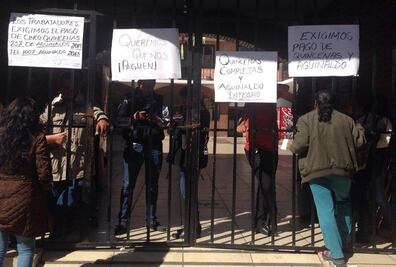 LOS TRABAJADORES
EXIGIMOS EL PAGO
DE CINCO QUINCENAS
DE AGUINALDOS
QUEREMOS
QUE NOS
¡PAGUEN!
QUEREMOS
COMPLETAS Y
AGUINALDO
INTEGRO
EXIGIMOS
PAGO DE
QUINCENAS Y
AGUINALDO